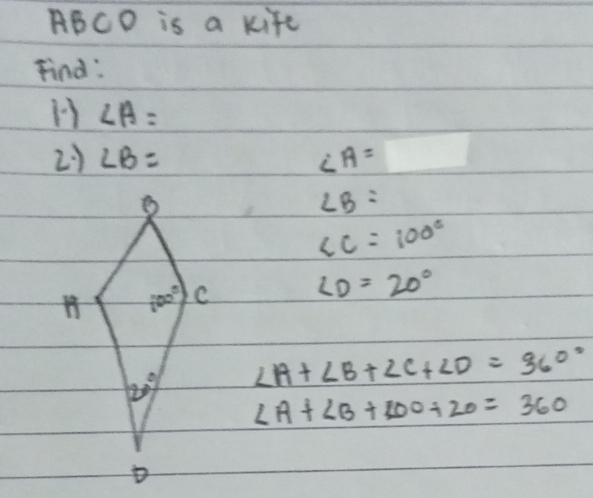 ABCD is a kite
Find:
1.) ∠A =
2.) ∠B =
∠A =
∠B =
∠C = 100°
∠D = 20°
B
A
100°
C
20°
D
∠A + ∠B + ∠C + ∠D = 360°
∠A + ∠B + 100 + 20 = 360